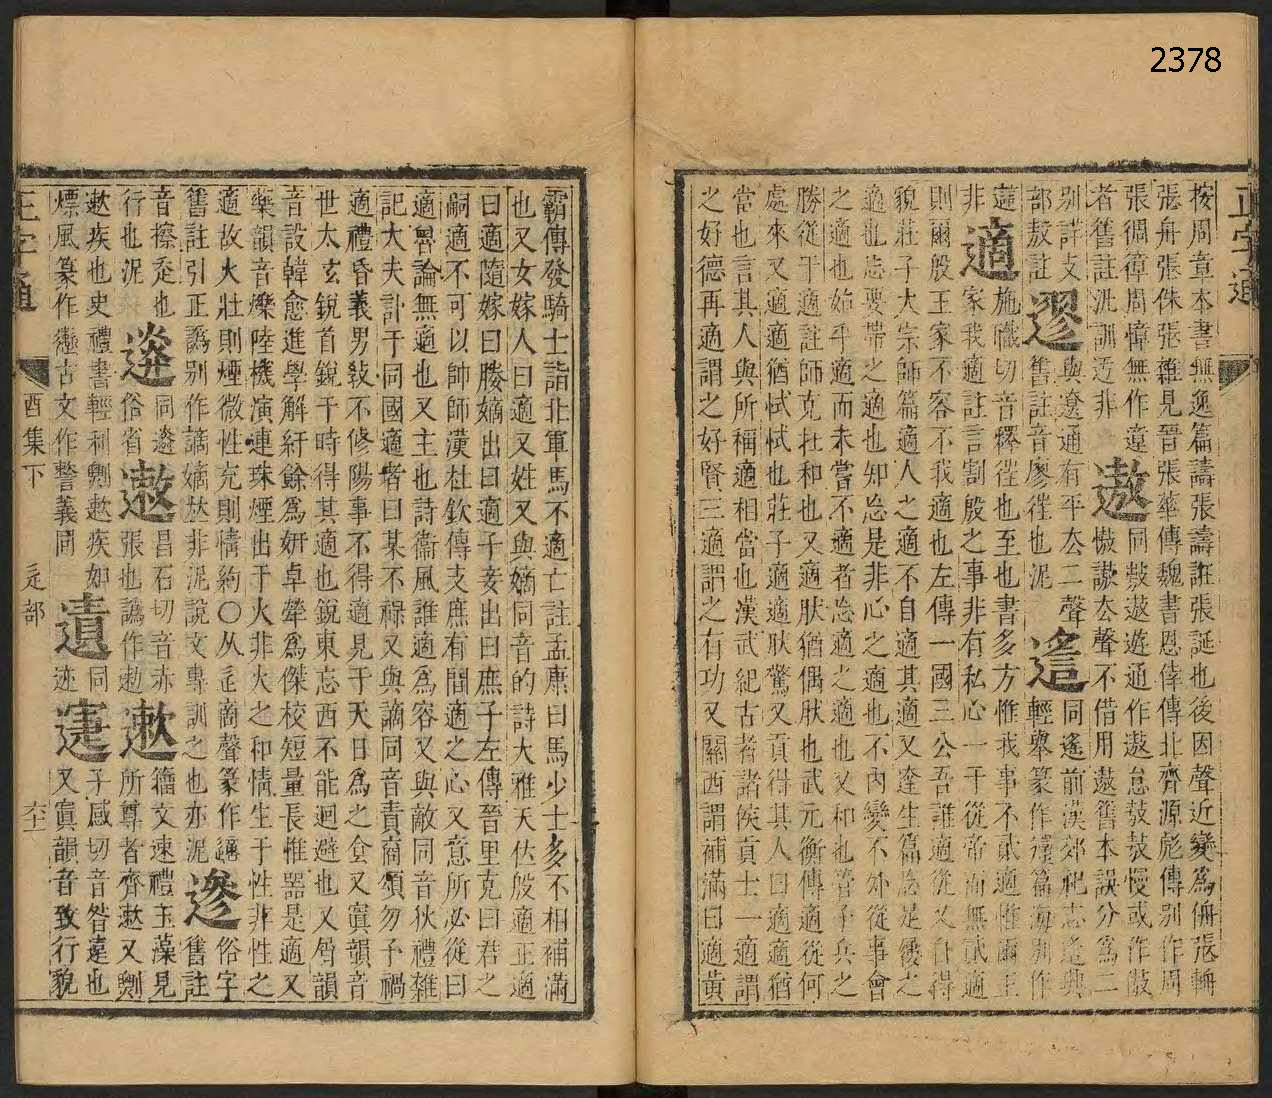 2378
正字通
按周章本書無逸篇譸張譸誑張誕也後因聲近變爲侜張輈
張舟張侏張雜見晉張華傳魏書恩倖傳北齊源彪傳别作周
張徟徫周慞無作遧 遨 同敖遨遊通作遨怠敖敖慢或作敖
者舊註泥訓迃非 傲謷去聲不借用遨舊本誤分爲二
别詳攴 與遼通有平去二聲 遙 同遙前漢郊祀志遙興
部敖註 遼 舊註音廖徃也泥 輕舉篆作䍃篇海别作
適 施職切音釋徃也至也書多方惟我事不貳適惟爾王
非 家我適註言割殷之事非有私心一于從帝而無貳適
則爾殷王家不容不我適也左傳一國三公吾誰適從又自得
貌莊子大宗師篇適人之適不自適其適又逹生篇忘足屨之
適也忘要帶之適也知忘是非心之適也不內變不外從事會
之適也始乎適而未嘗不適者忘適之適也又和也管子兵之
勝從于適註師克在和也又適肰猶偶肰也武元衡傳適從何
處來又適適猶忒忒也莊子適適肰驚又貢得其人曰適適猶
當也言其人與所稱適相當也漢武紀古者諸侯貢士一適謂
之好德再適謂之好賢三適謂之有功又關西謂補滿曰適黃
霸傳發騎士詣北軍馬不適亡註孟康曰馬少士多不相補滿
也又女嫁人曰適又姓又與嫡同音的詩大雅天位殷適正適
曰適隨嫁曰媵嫡出曰適子妾出曰庶子左傳晉里克曰君之
嗣適不可以帥師漢杜欽傳支庶有間適之心又意所必從曰
適魯論無適也又主也詩衞風誰適爲容又與敵同音狄禮雜
記大夫訃于同國適者曰某不祿又與讁同音責商頌勿予禍
適禮昏義男敎不修陽事不得適見于天日爲之食又寘韻音
世太玄銳首銳于時得其適也銳東忘西不能迴避也又屑韻
音設韓愈進學解紆餘爲妍卓犖爲傑校短量長惟器是適又
藥韻音爍陸機演連珠煙出于火非火之和情生于性非性之
適故火壯則煙微性充則情約〇从辵啇聲篆作䙗 遪 俗字
舊註引正譌别作謫嫡𠀤非泥說文專訓之也亦泥 舊註
音摖辵也 遾 同遾 遫 昌石切音赤 遬 籀文速禮玉藻見
行也泥 俗省 張也譌作 所尊者齊遬又劓
遬疾也史禮書輕利剽遬疾如 遺 同 疌 子感切音昝遠也
熛風篆作䜌古文作警義同 迹 又寘韻音致行貌
正字通
酉集下
辵部
六十